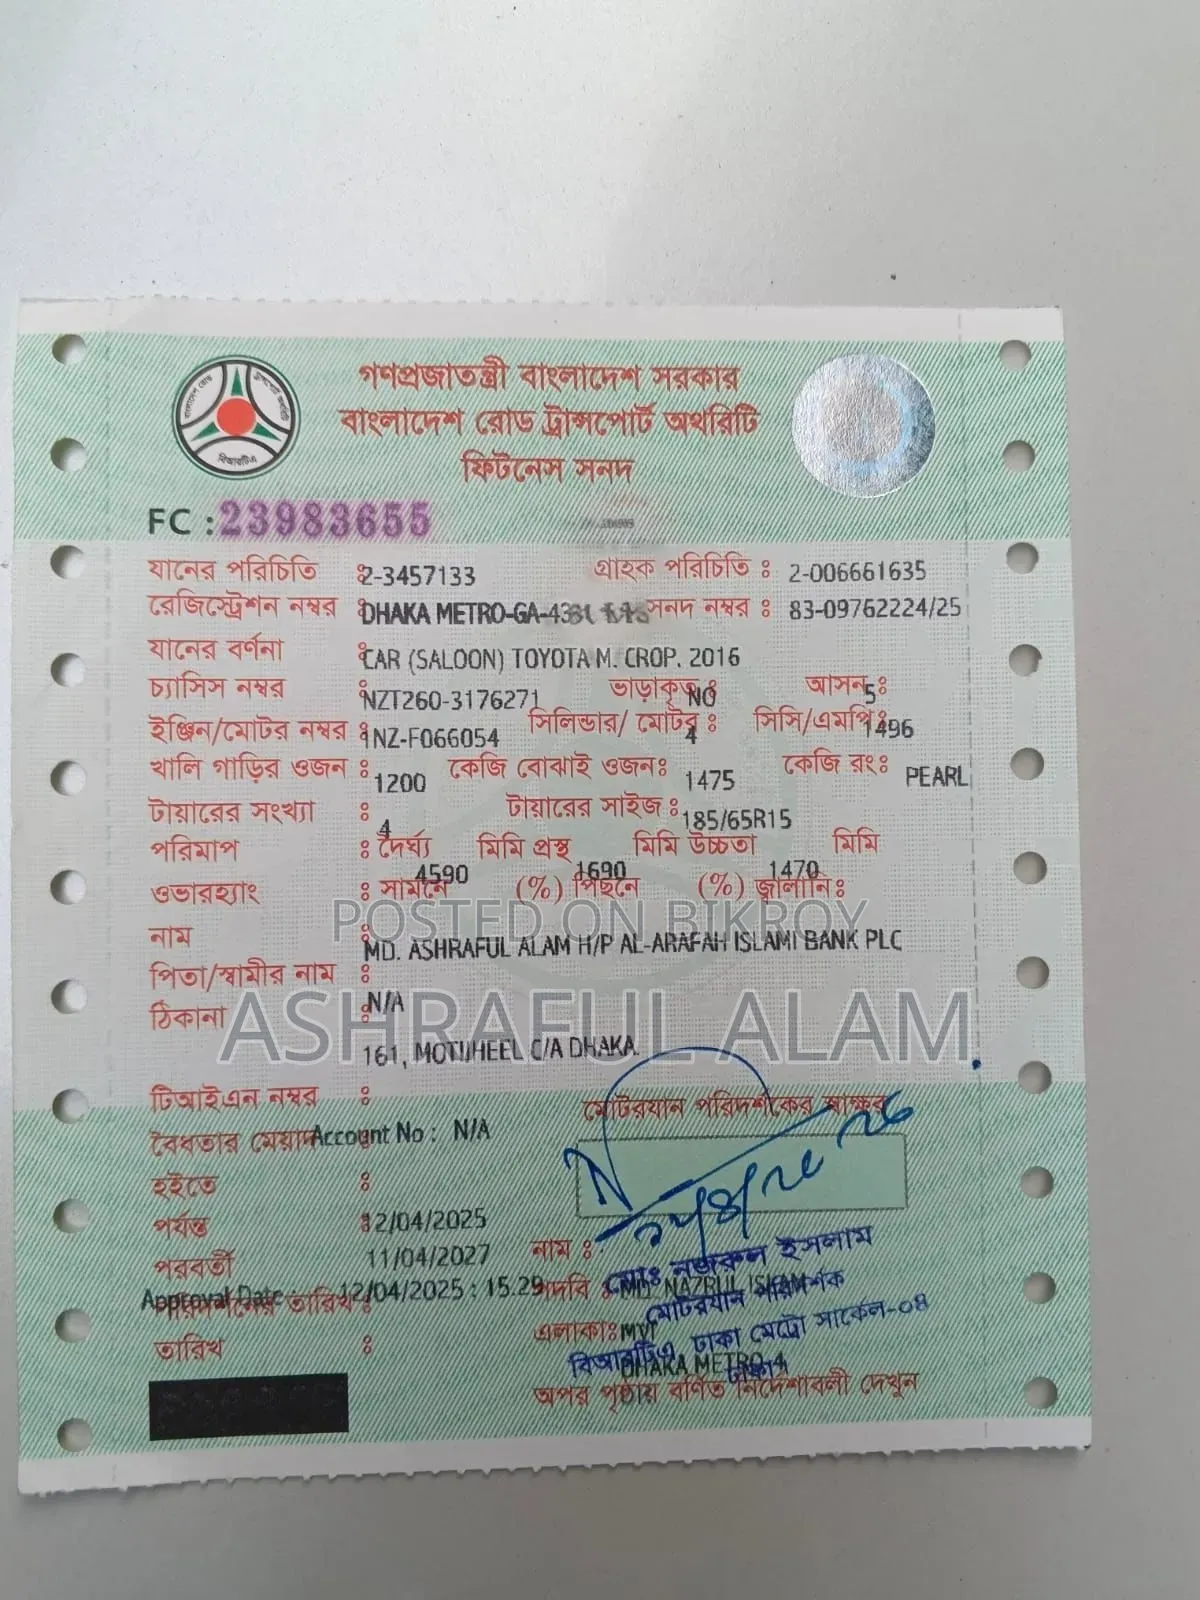 গণপ্রজাতন্ত্রী বাংলাদেশ সরকার
বাংলাদেশ রোড ট্রান্সপোর্ট অথরিটি
ফিটনেস সনদ
বিআরটিএ
FC : 23983655
যানের পরিচিতি : 2-3457133 গ্রাহক পরিচিতি : 2-006661635
রেজিস্ট্রেশন নম্বর : DHAKA METRO-GA-43 সনদ নম্বর : 83-09762224/25
যানের বর্ণনা : CAR (SALOON) TOYOTA M. CROP. 2016
চ্যাসিস নম্বর : NZT260-3176271 ভাড়াকৃত : NO আসন : 5
ইঞ্জিন/মোটর নম্বর : 1NZ-F066054 সিলিন্ডার/ মোটর : 4 সিসি/এমপি : 1496
খালি গাড়ির ওজন : 1200 কেজি বোঝাই ওজন : 1475 কেজি রং : PEARL
টায়ারের সংখ্যা : 4 টায়ারের সাইজ : 185/65R15
পরিমাপ : দৈর্ঘ্য 4590 মিমি প্রস্থ 1690 মিমি উচ্চতা 1470 মিমি
ওভারহ্যাং : সামনে (%) পিছনে (%) জ্বালানি :
POSTED ON BIKROY
নাম : MD. ASHRAFUL ALAM H/P AL-ARAFAH ISLAMI BANK PLC
পিতা/স্বামীর নাম : N/A
ASHRAFUL ALAM
ঠিকানা : 161, MOTIJHEEL C/A DHAKA.
টিআইএন নম্বর :
মোটরযান পরিদর্শকের স্বাক্ষর
বৈধতার মেয়াদ Account No : N/A
হইতে : 12/04/2025
পর্যন্ত : 11/04/2027
পরবর্তী
Approval Date : 12/04/2025 : 15.29
তারিখ :
নাম :
মোঃ নজরুল ইসলাম
পদবি : MD. NAZRUL ISLAM
মোটরযান পরিদর্শক
এলাকাঃ MVI
বিআরটিএ, ঢাকা মেট্রো সার্কেল-০৪
DHAKA METRO-4
ঢাকা
অপর পৃষ্ঠায় বর্ণিত নির্দেশাবলী দেখুন